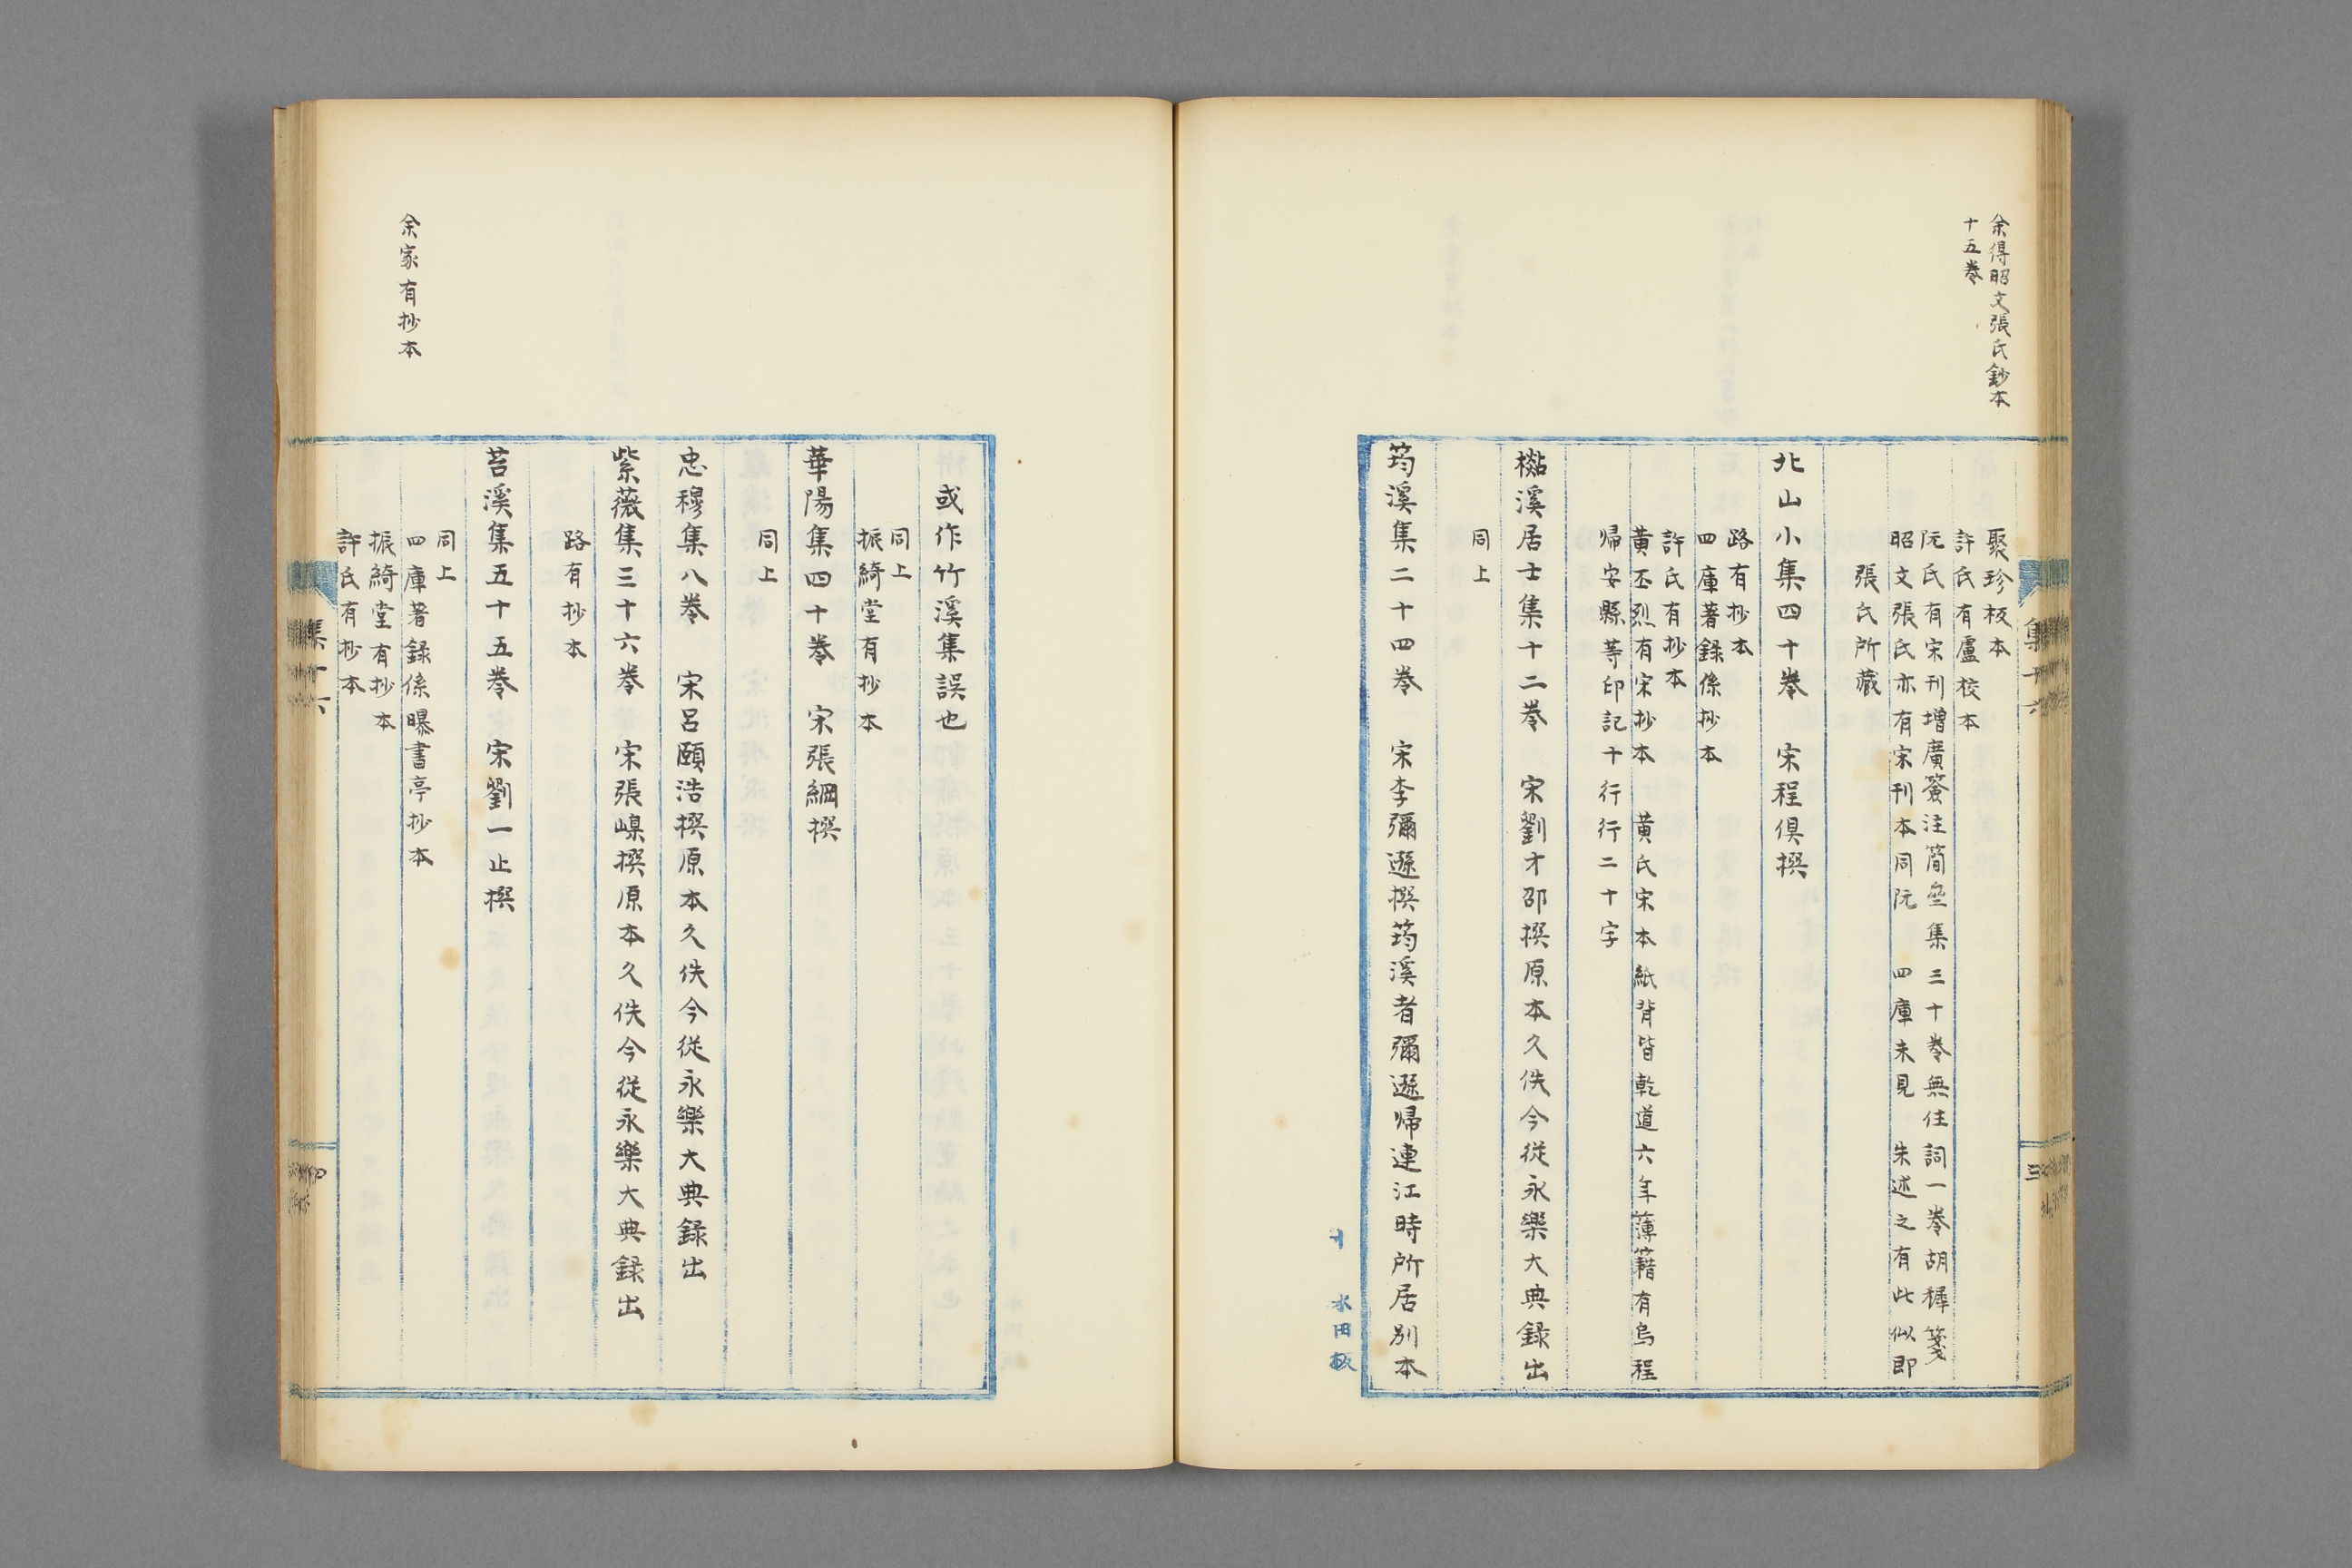 余得昭文張氏鈔本
十五卷
聚珍板本
許氏有盧校本
阮氏有宋刊增廣箋注簡齋集三十卷無住詞一卷胡穉箋
昭文張氏亦有宋刊本同阮　四庫未見　朱述之有此似即
張氏所藏
北山小集四十卷　宋程俱撰
路有抄本
四庫著錄係抄本
許氏有抄本
黃丕烈有宋抄本　黃氏宋本紙背皆乾道六年薄籍有烏程
歸安縣等印記十行行二十字
檆溪居士集十二卷　宋劉才邵撰原本久佚今從永樂大典錄出
同上
筠溪集二十四卷　宋李彌遜撰筠溪者彌遜歸連江時所居別本
水田板
集十六
三
或作竹溪集誤也
同上
振綺堂有抄本
華陽集四十卷　宋張綱撰
同上
忠穆集八卷　宋呂頤浩撰原本久佚今從永樂大典錄出
紫薇集三十六卷　宋張嵲撰原本久佚今從永樂大典錄出
路有抄本
苕溪集五十五卷　宋劉一止撰
同上
四庫著錄係曝書亭抄本
余家有抄本
振綺堂有抄本
許氏有抄本
集十六
四